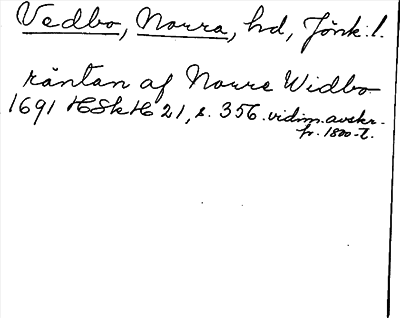 Vedbo, Norra, hd, Jönk. l.
räntan af Norre Widbo
1691 HSkH 21, s. 356. vidim. avskr.
fr. 1800-t.